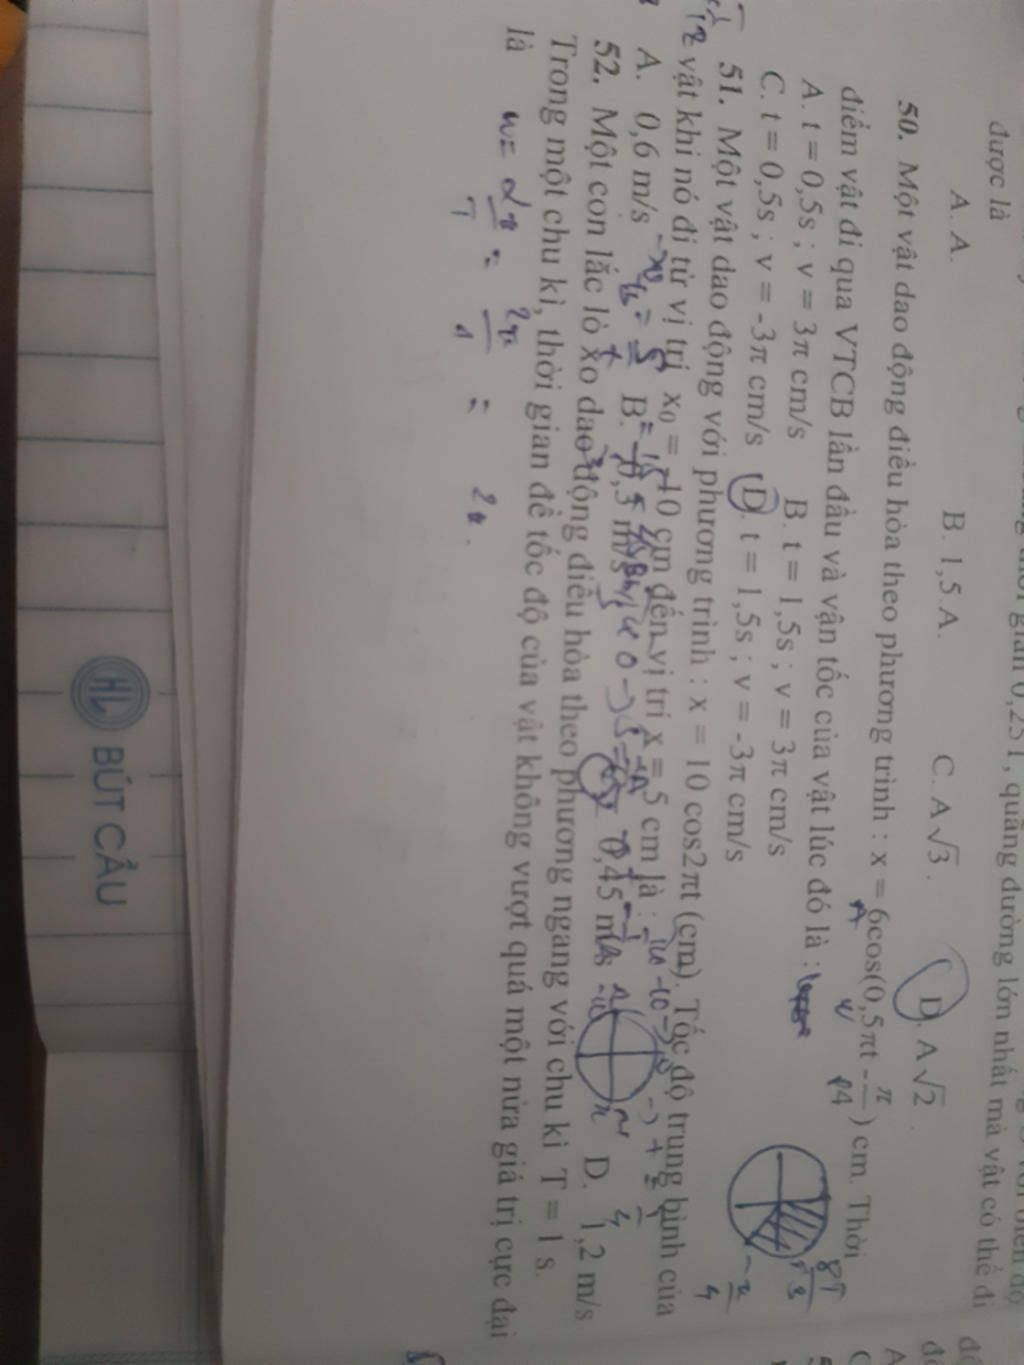 gian 0,25T, quãng đường lớn nhất mà vật có thể đi
được là
A. A. B. 1,5.A. C. A√3. D. A√2.
50. Một vật dao động điều hòa theo phương trình : x = 6cos(0,5πt - π/4) cm. Thời
điểm vật đi qua VTCB lần đầu và vận tốc của vật lúc đó là :
A. t = 0,5s ; v = 3π cm/s B. t = 1,5s ; v = 3π cm/s
C. t = 0,5s ; v = -3π cm/s D. t = 1,5s ; v = -3π cm/s
51. Một vật dao động với phương trình : x = 10 cos2πt (cm). Tốc độ trung bình của
vật khi nó đi từ vị trí x₀ = -10 cm đến vị trí x = 5 cm là :
A. 0,6 m/s B. 0,5 m/s 0,45 m/s D. 1,2 m/s
52. Một con lắc lò xo dao động điều hòa theo phương ngang với chu kì T = 1 s.
Trong một chu kì, thời gian để tốc độ của vật không vượt quá một nửa giá trị cực đại
là
w = 2π/T = 2π/1 = 2π.
HL BÚT CẦU